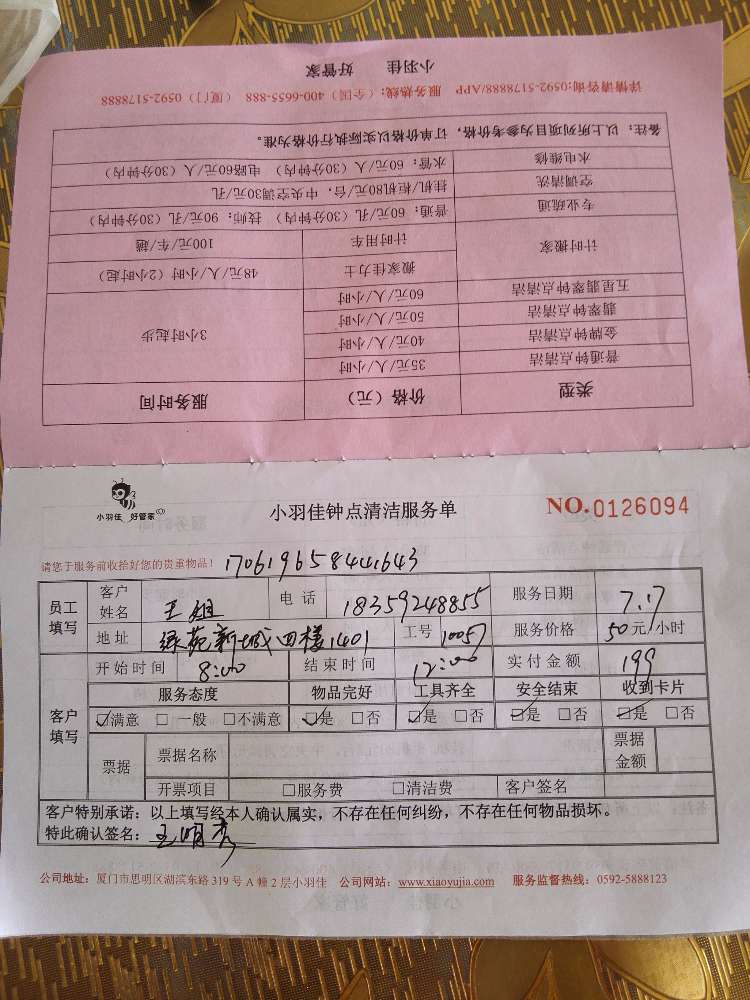 小羽佳 好管家
详情请咨询:0592-5178888/APP 服务热线:(全国)400-6655-888 (厦门)0592-5178888
备注:以上所列项目为参考价格,订单价格以实际执行价格为准。
水电维修 水管:60元/人(30分钟内) 电路60元/人(30分钟内)
空调清洗 挂机/柜机80元/台,中央空调30元/孔
专业疏通 普通:60元/孔(30分钟内) 技师:90元/孔(30分钟内)
计时搬家 计时用车 100元/车/趟
搬家佳力士 48元/人/小时(2小时起)
五星翡翠钟点清洁 60元/人/小时
翡翠钟点清洁 50元/人/小时
3小时起步
金牌钟点清洁 40元/人/小时
普通钟点清洁 35元/人/小时
类型 价格(元) 服务时间
小羽佳 好管家
小羽佳钟点清洁服务单
NO.0126094
请您于服务前收拾好您的贵重物品!170619658441643
员工填写 客户姓名 王姐 电话 18359248855 服务日期 7.17
地址 绿苑新城四楼1401 工号 10057 服务价格 50元/小时
客户填写 开始时间 8:00 结束时间 12:00 实付金额 199
服务态度 物品完好 工具齐全 安全结束 收到卡片
☑满意 □一般 □不满意 ☑是 □否 ☑是 □否 ☑是 □否 ☑是 □否
票据 票据名称 票据金额
开票项目 □服务费 □清洁费 客户签名
客户特别承诺:以上填写经本人确认属实,不存在任何纠纷,不存在任何物品损坏。
特此确认签名:王明秀
公司地址:厦门市思明区湖滨东路319号A幢2层小羽佳 公司网站:www.xiaoyujia.com 服务监督热线:0592-5888123